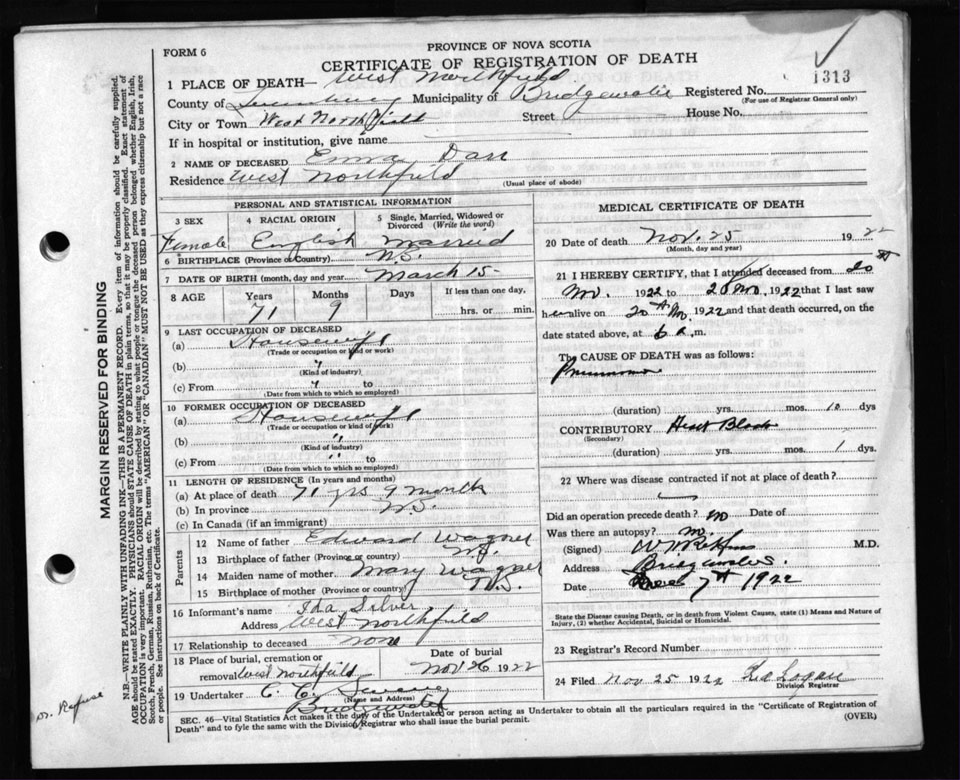 PROVINCE OF NOVA SCOTIA
FORM 6
CERTIFICATE OF REGISTRATION OF DEATH
1313
1 PLACE OF DEATH— West Northfield
County of Lunenburg Municipality of Bridgewater Registered No.
(For use of Registrar General only)
City or Town West Northfield Street House No.
If in hospital or institution, give name
2 NAME OF DECEASED Emma
Residence West Northfield
(Usual place of abode)
PERSONAL AND STATISTICAL INFORMATION
3 SEX 4 RACIAL ORIGIN 5 Single, Married, Widowed or Divorced (Write the word)
Female English Married
6 BIRTHPLACE (Province or Country) N.S.
7 DATE OF BIRTH (month, day and year) March 15
8 AGE Years Months Days If less than one day,
71 9 hrs. or min.
9 LAST OCCUPATION OF DECEASED
(a) Housewife
(Trade or occupation or kind or work)
(b) "
(Kind of industry)
(c) From " to
(Date from which to which so employed)
10 FORMER OCCUPATION OF DECEASED
(a) Housewife
(Trade or occupation or kind of work)
(b) "
(Kind of industry)
(c) From " to
(Date from which to which so employed)
11 LENGTH OF RESIDENCE (In years and months)
(a) At place of death 71 yrs 9 month
(b) In province N.S.
(c) In Canada (if an immigrant)
Parents
12 Name of father Edward Wagner
13 Birthplace of father (Province or country) N.S.
14 Maiden name of mother. Mary Wagner
15 Birthplace of mother (Province or country) N.S.
16 Informant's name Ida Silver
Address West Northfield
17 Relationship to deceased none
18 Place of burial, cremation or removal West Northfield
Date of burial Nov 26 1922
19 Undertaker C. C.
(Name and Address)
Bridgewater
MEDICAL CERTIFICATE OF DEATH
20 Date of death Nov. 25 1922
(Month, day and year)
21 I HEREBY CERTIFY, that I attended deceased from 20
Nov. 1922 to Nov. 1922 that I last saw
her alive on 20th Nov 1922 and that death occurred, on
date stated above, at 6 a.m.
The CAUSE OF DEATH was as follows:
Pneumonia
(duration) yrs. mos. 10 dys
CONTRIBUTORY Heart Block
(Secondary)
(duration) yrs. mos. 1 dys.
22 Where was disease contracted if not at place of death?
Did an operation precede death? no Date of
Was there an autopsy? no.
(Signed) M.D.
Address Bridgewater
Date 7th 1922
State the Disease causing Death, or in death from Violent Causes, state (1) Means and Nature of
Injury, (2) whether Accidental, Suicidal or Homicidal.
23 Registrar's Record Number
24 Filed Nov 25 1922 Logan
Division Registrar
SEC. 46—Vital Statistics Act makes it the duty of the Undertaker or person acting as Undertaker to obtain all the particulars required in the "Certificate of Registration of
Death" and to fyle the same with the Division Registrar who shall issue the burial permit.
(OVER)
MARGIN RESERVED FOR BINDING
N.B.—WRITE PLAINLY WITH UNFADING INK—THIS IS A PERMANENT RECORD. Every item of information should be carefully supplied.
AGE should be stated EXACTLY. PHYSICIANS should STATE CAUSE OF DEATH in plain terms, so that it may be properly classified. Exact statement of
OCCUPATION is very important. RACIAL ORIGIN will be described by stating to what people or tongue the deceased person belonged whether English, Irish,
Scotch, French, German, Russian, Ruthenian, etc. The terms "AMERICAN" OR "CANADIAN" MUST NOT BE USED as they express citizenship but not a race
or people. See instructions on back of Certificate.